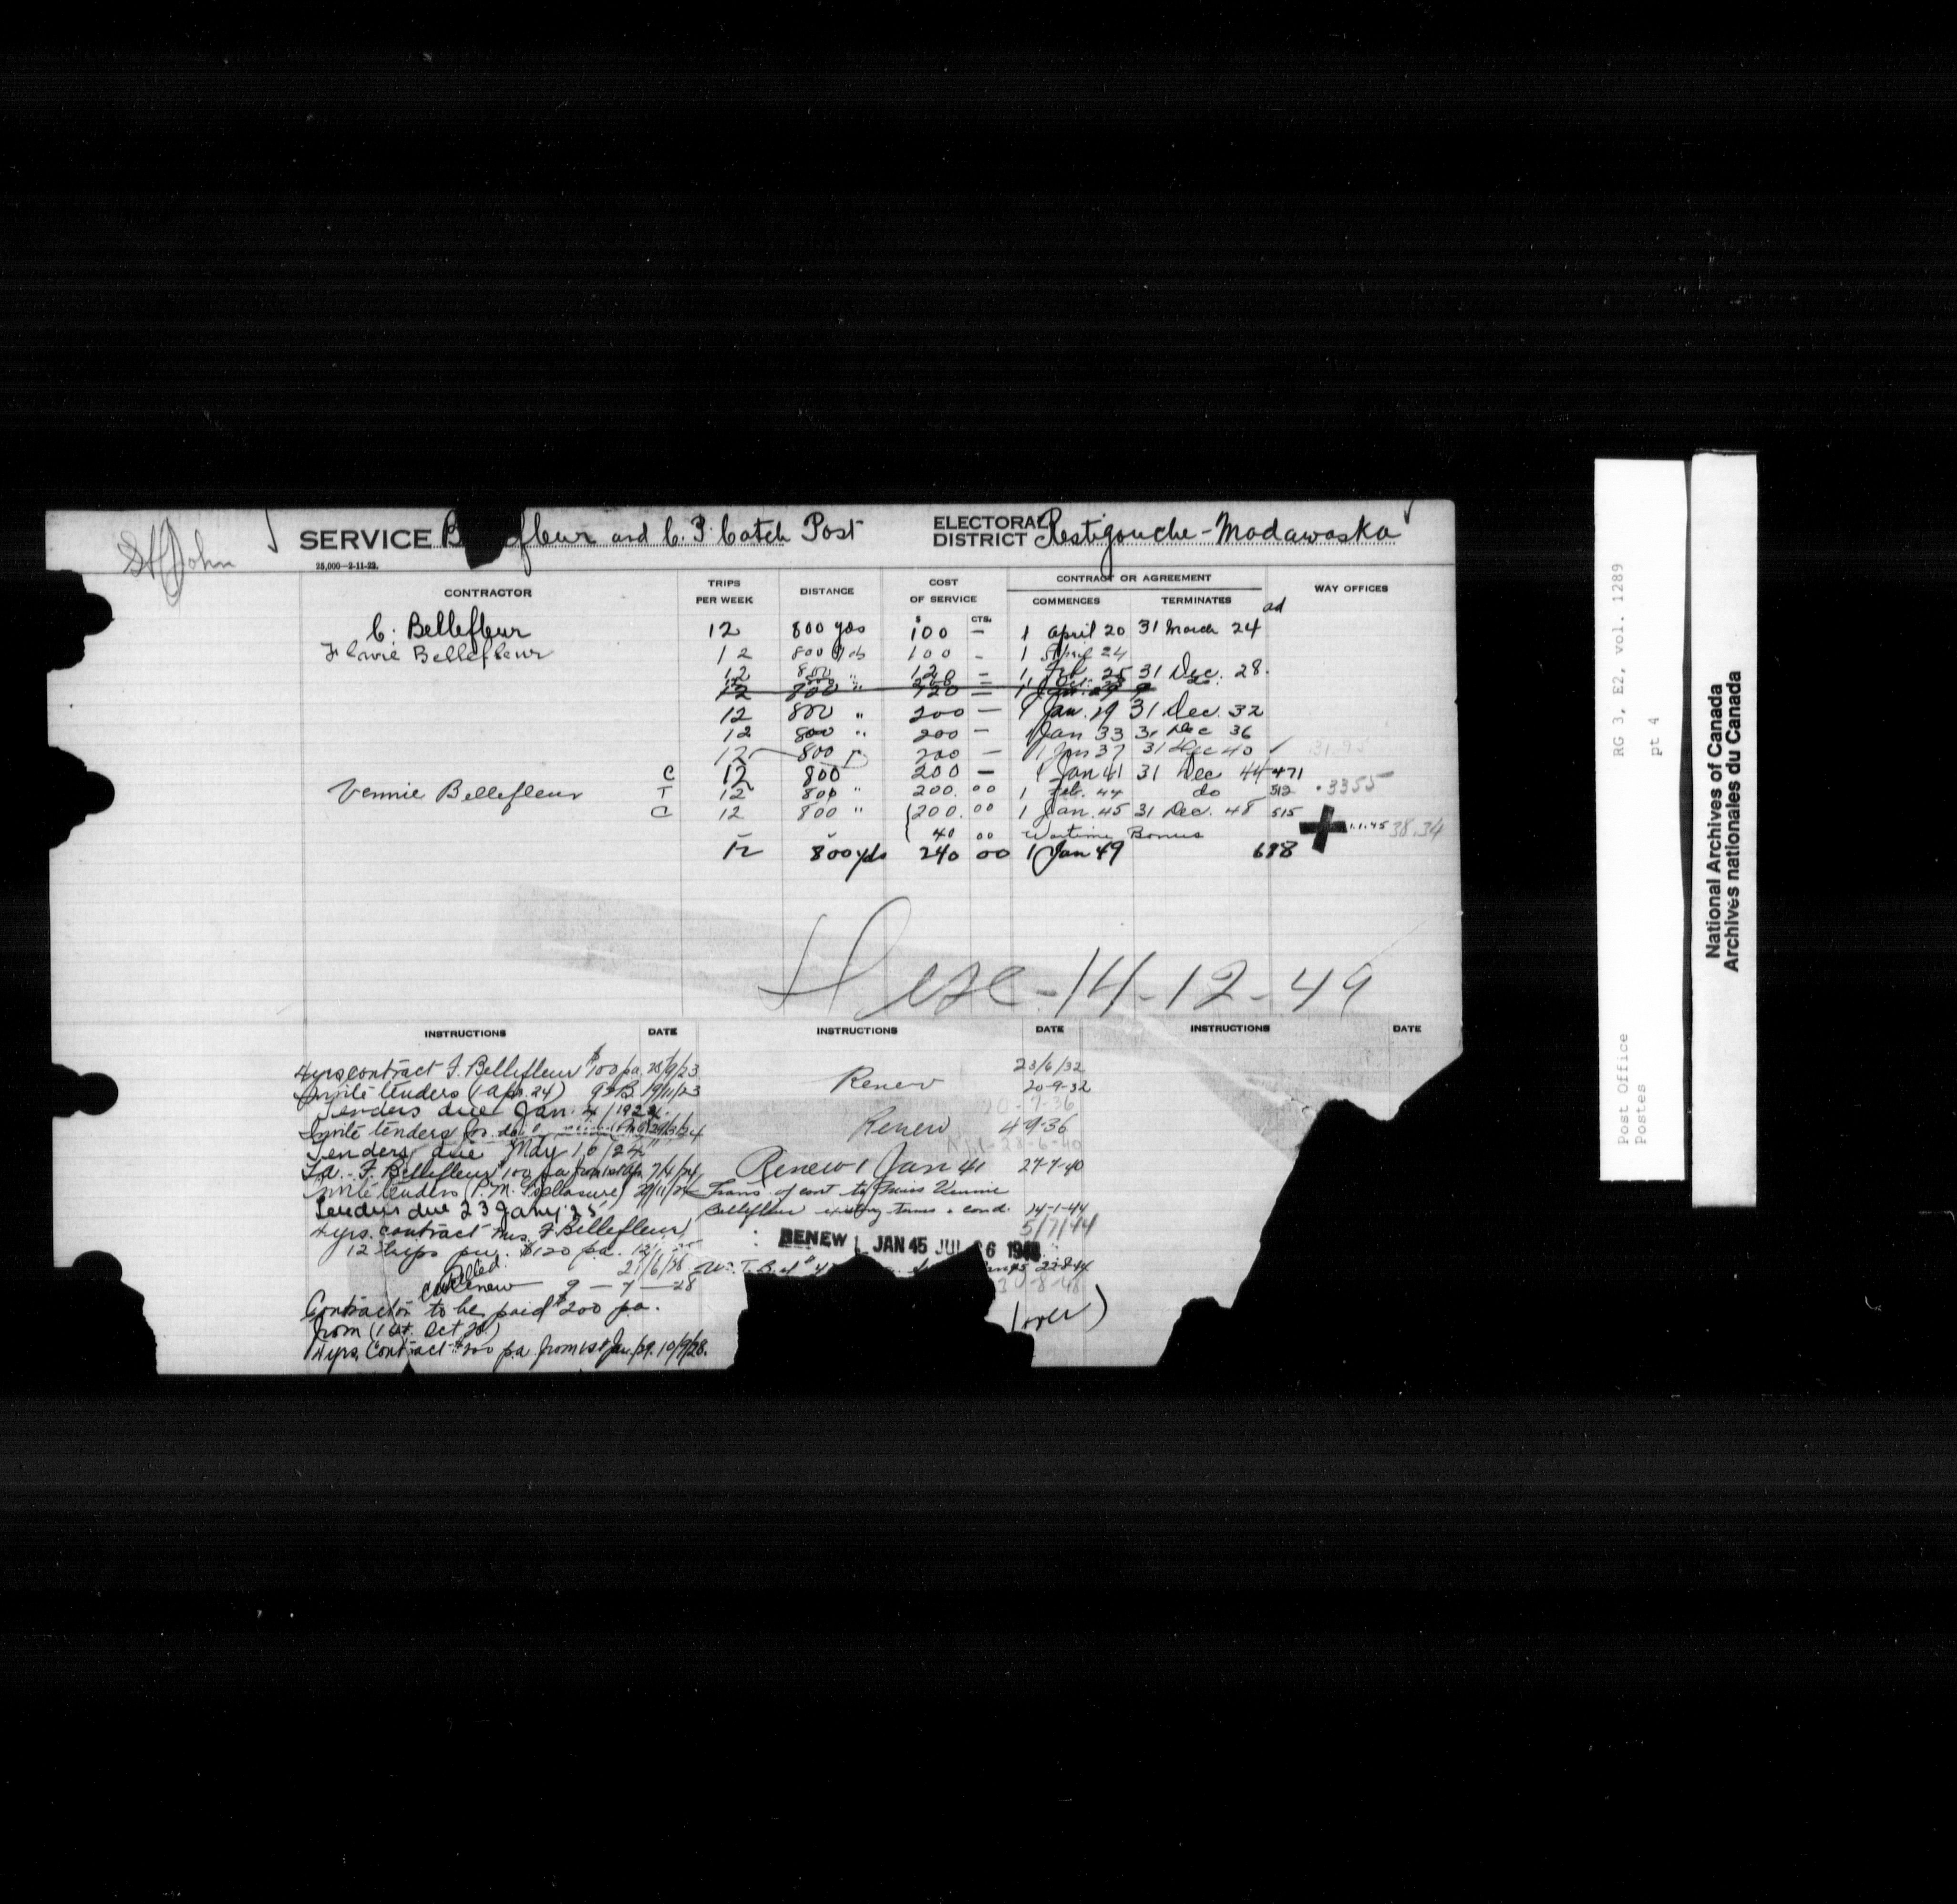 St John
SERVICE B fleur and C. P. Catch Post
ELECTORAL DISTRICT Restigouche-Madawaska
25,000—2-11-22.
CONTRACTOR TRIPS PER WEEK DISTANCE COST OF SERVICE CONTRACT OR AGREEMENT WAY OFFICES
$ CTS. COMMENCES TERMINATES
ad
C. Bellefleur 12 800 yds 100 — 1 April 20 31 March 24
Flavie Bellefleur 12 800 yds 100 — 1 April 24
12 800 " 120 — 1 Feb. 25 31 Dec. 28.
12 800 " 120 — 1 Jan. 29
12 800 " 200 — 1 Jan. 29 31 Dec. 32
12 800 " 200 — 1 Jan 33 31 Dec 36
12 800 200 — 1 Jan 37 31 Dec 40 ✓ 31.95
C 12 800 200 — 1 Jan 41 31 Dec 44 471
Vennie Bellefleur T 12 800 " 200.00 1 Feb. 44 do 512 .3355
C 12 800 " 200.00 1 Jan. 45 31 Dec. 48 515
40 00 Wartime Bonus 1.1.45 38.34
12 800 yds 240 00 1 Jan 49 688
Desc-14-12-49
INSTRUCTIONS DATE INSTRUCTIONS DATE INSTRUCTIONS DATE
4 yrs contract F. Bellefleur $100 pa. 28/9/23
Invite tenders (1 Apr. 24) 19/11/23
Tenders due Jan. 4/1924.
Invite tenders
Tenders due May 16/24
F. Bellefleur $100 pa from 1st Apl.
Invite tenders (P.M.'s pleasure)
Tenders due 23 Jany '25
4 yrs. contract Mrs. F. Bellefleur
12 trips pw. $120 pa.
21/6/28
Cancelled
Renew 9—7—28
Contractor to be paid $200 pa.
from (1st. Oct 28)
4 yrs. Contract $200 pa from 1st Jan/29. 10/9/28.
Renew 23/6/32
20-9-32
Renew 4-9-36
Renew 1 Jan 41 27-7-40
Trans. of cont to Miss Vennie
Bellefleur existing terms & cond. 24-1-44
5/7/44
RENEW 1 JAN 45 JUL 6 19
22-8-44
30-8-48
(over)
RG 3, E2, vol. 1289
pt 4
Post Office
Postes
National Archives of Canada
Archives nationales du Canada